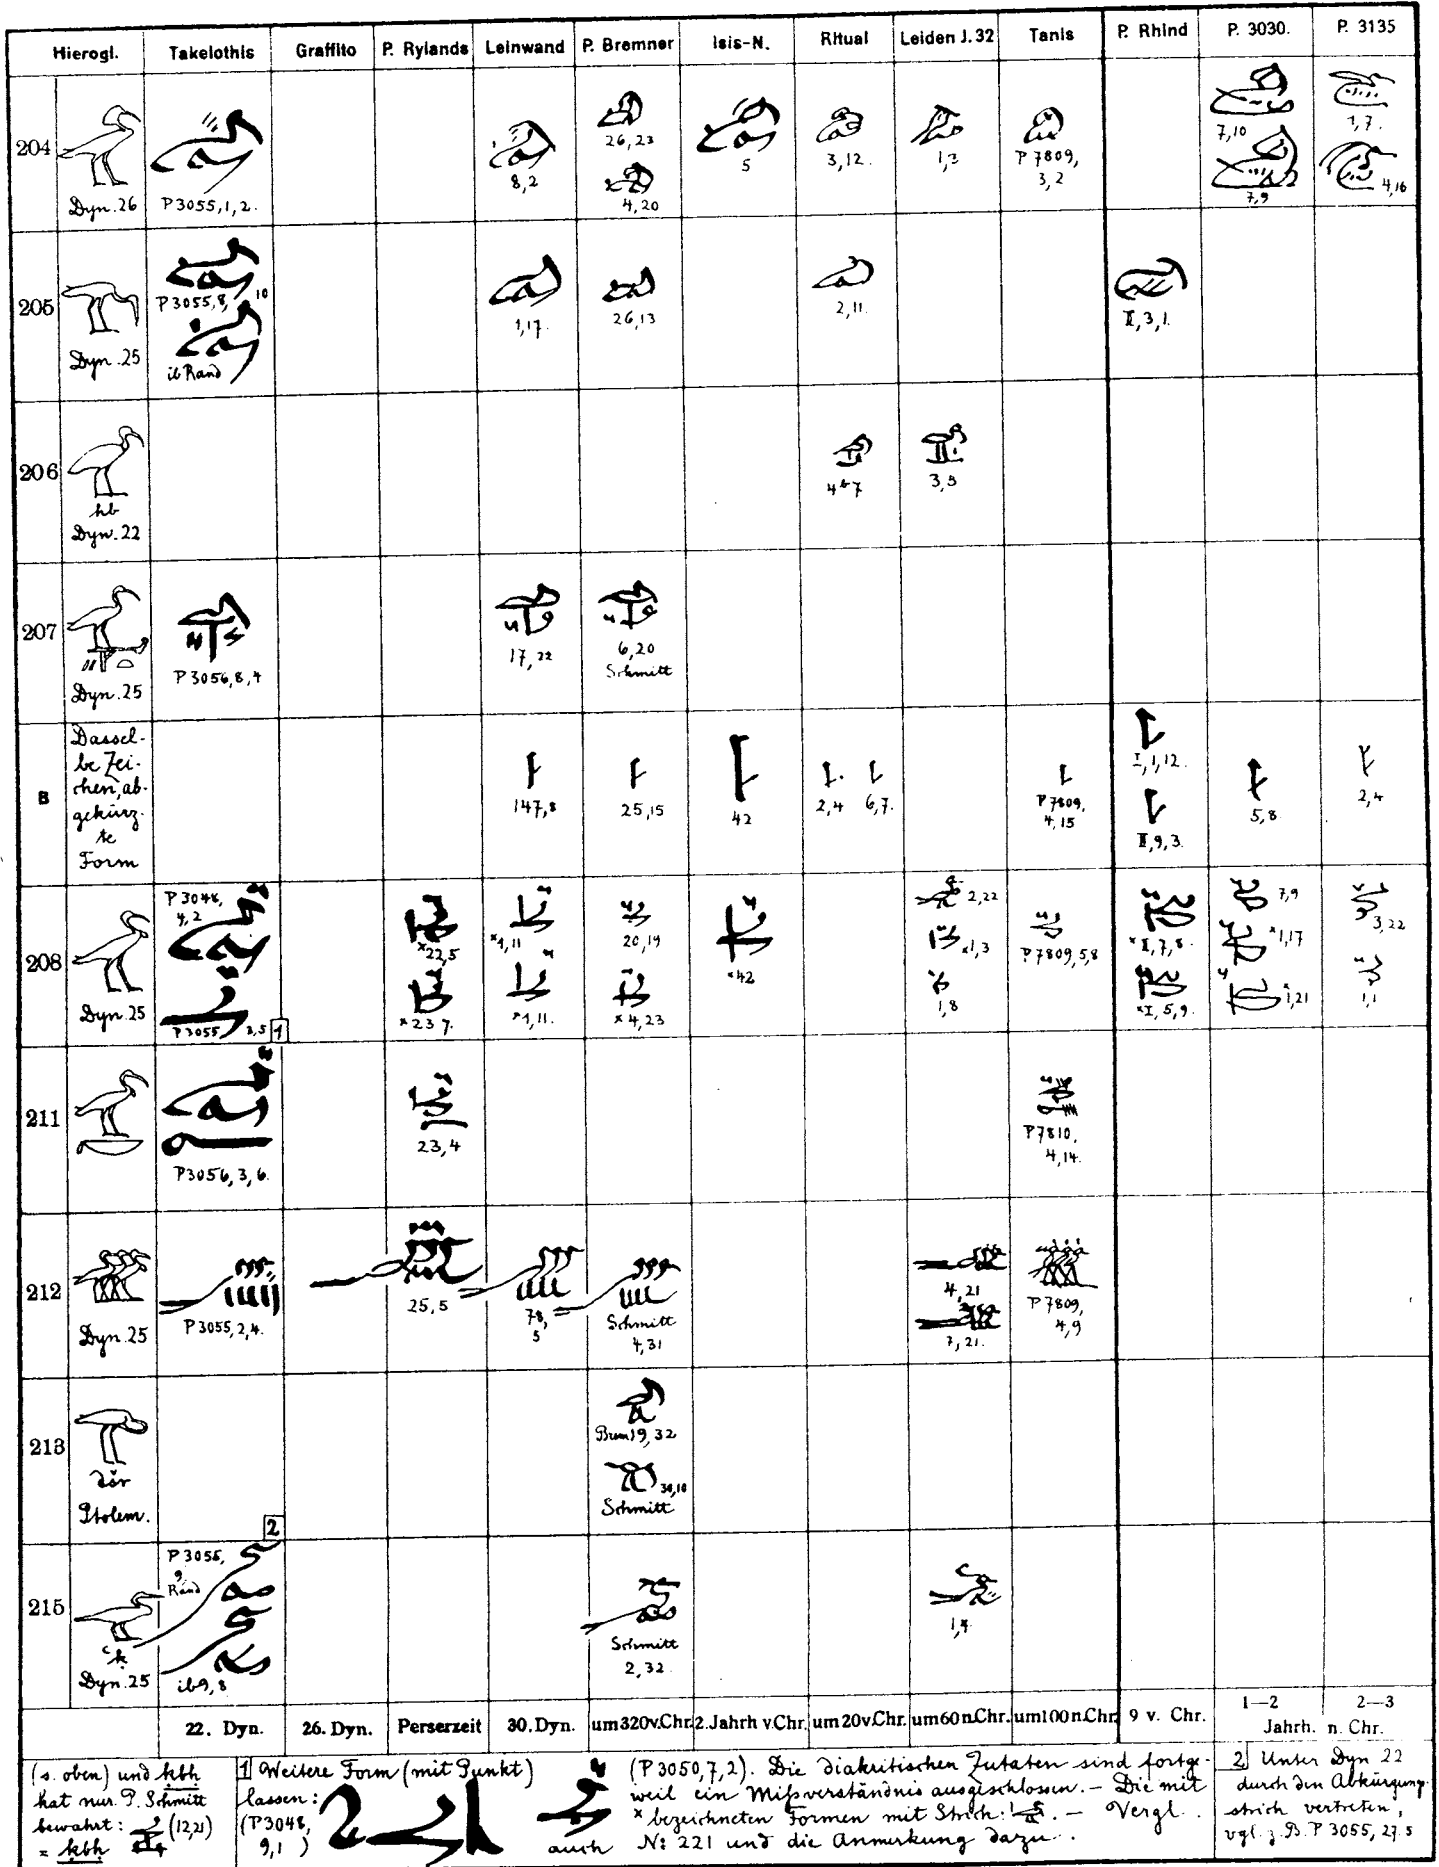 Hierogl. Takelothis Graffito P. Rylands Leinwand P. Bremner Isis-N. Ritual Leiden J. 32 Tanis P. Rhind P. 3030. P. 3135
204
Dyn. 26 P 3055, 1, 2. 8,2 26,23 4,20 5 3,12. 1,3 P 7809, 3,2 7,10 7,9 1,7. 4,16
205
Dyn. 25 P 3055, 8, 10 ib Rand 1,17. 26,13 2,11. II, 3, 1.
206
hb
Dyn. 22 3,5
207
Dyn. 25 P 3056, 8, 4 17, 22 6,20 Schmitt
B
Dassel-
be Zei-
chen, ab-
gekürz-
te
Form
147,8 25,15 42 2,4 6,7. P 7809, 4,15 I, 1, 12. II, 9, 3. 5,8. 2,4
208
Dyn. 25 P 3048, 4,2 P 3055, 2,5 1 *22,5 *23 7. *1,11 *1,11. 20,19 *4,23 *42 2,22 *1,3 1,8 P 7809, 5,8 *I, 7, 8. *I, 5, 9. 7,9 *1,17 *1,21 3,22 1,1
211
P 3056, 3, 6. 23,4 P 7810, 4,14.
212
Dyn. 25 P 3055, 2, 4. 25,5 78, 5 Schmitt 4,31 4,21 7,21. P 7809, 4,9
213
Ptolem. Brem 19, 32 30,10 Schmitt
2
215
Dyn. 25 P 3055, 9, Rand ib 9, 8 Schmitt 2,32.
22. Dyn. 26. Dyn. Perserzeit 30. Dyn. um 320 v. Chr. 2. Jahrh v. Chr. um 20 v. Chr. um 60 n. Chr. um 100 n. Chr. 9 v. Chr. 1—2 2—3
Jahrh. n. Chr.
(s. oben) und kbh
hat nur P. Schmitt
bewahrt: (12,21)
= kbh
1 Weitere Form (mit Punkt) (P 3050, 7, 2). Die diakritischen Zutaten sind fortge-
lassen: weil ein Mißverständnis ausgeschlossen. — Die mit
(P 3048, 9,1) * bezeichneten Formen mit Strich: . — Vergl.
auch № 221 und die Anmerkung dazu.
2 Unter Dyn 22
durch den Abkürzungs-
strich vertreten,
vgl. z. B. P 3055, 27. 5